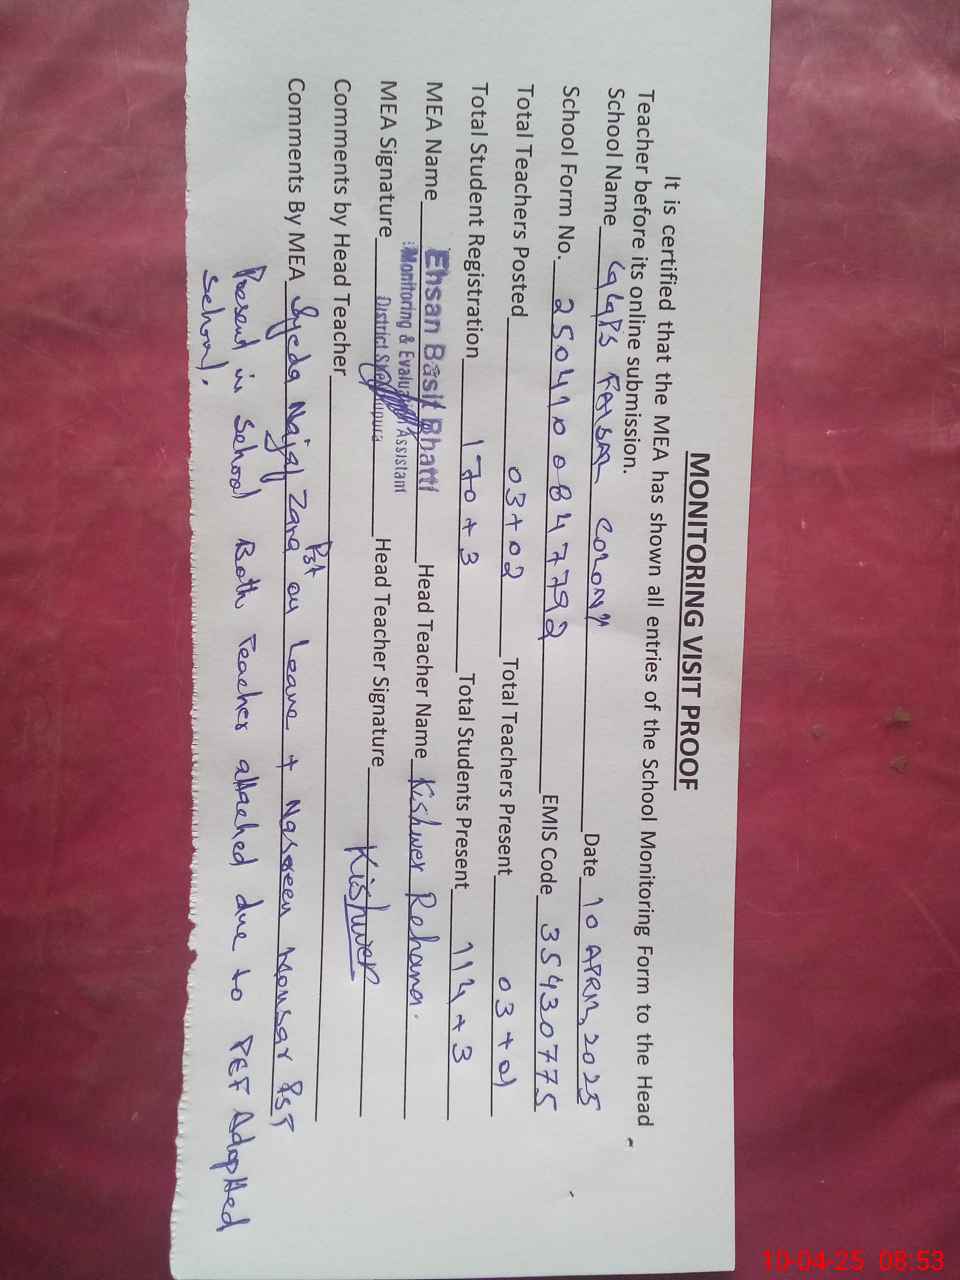 MONITORING VISIT PROOF
It is certified that the MEA has shown all entries of the School Monitoring Form to the Head
Teacher before its online submission.
School Name GGPS FAISAL COLONY Date 10 APRIL, 2025
School Form No. 2504100847792 EMIS Code 35430775
Total Teachers Posted 03+02 Total Teachers Present 03+01
Total Student Registration 170+3 Total Students Present 114+3
MEA Name Ehsan Basit Bhatti Head Teacher Name Kishwer Rehana.
Monitoring & Evaluation Assistant
District Sheikhupura
MEA Signature Head Teacher Signature Kishwer
Comments by Head Teacher
Comments By MEA Syeda Najaf Zara PST on Leave + Nasreen PST
Present in School Both Teacher attached due to PEF Adopted
School.
10-04-25 08:53